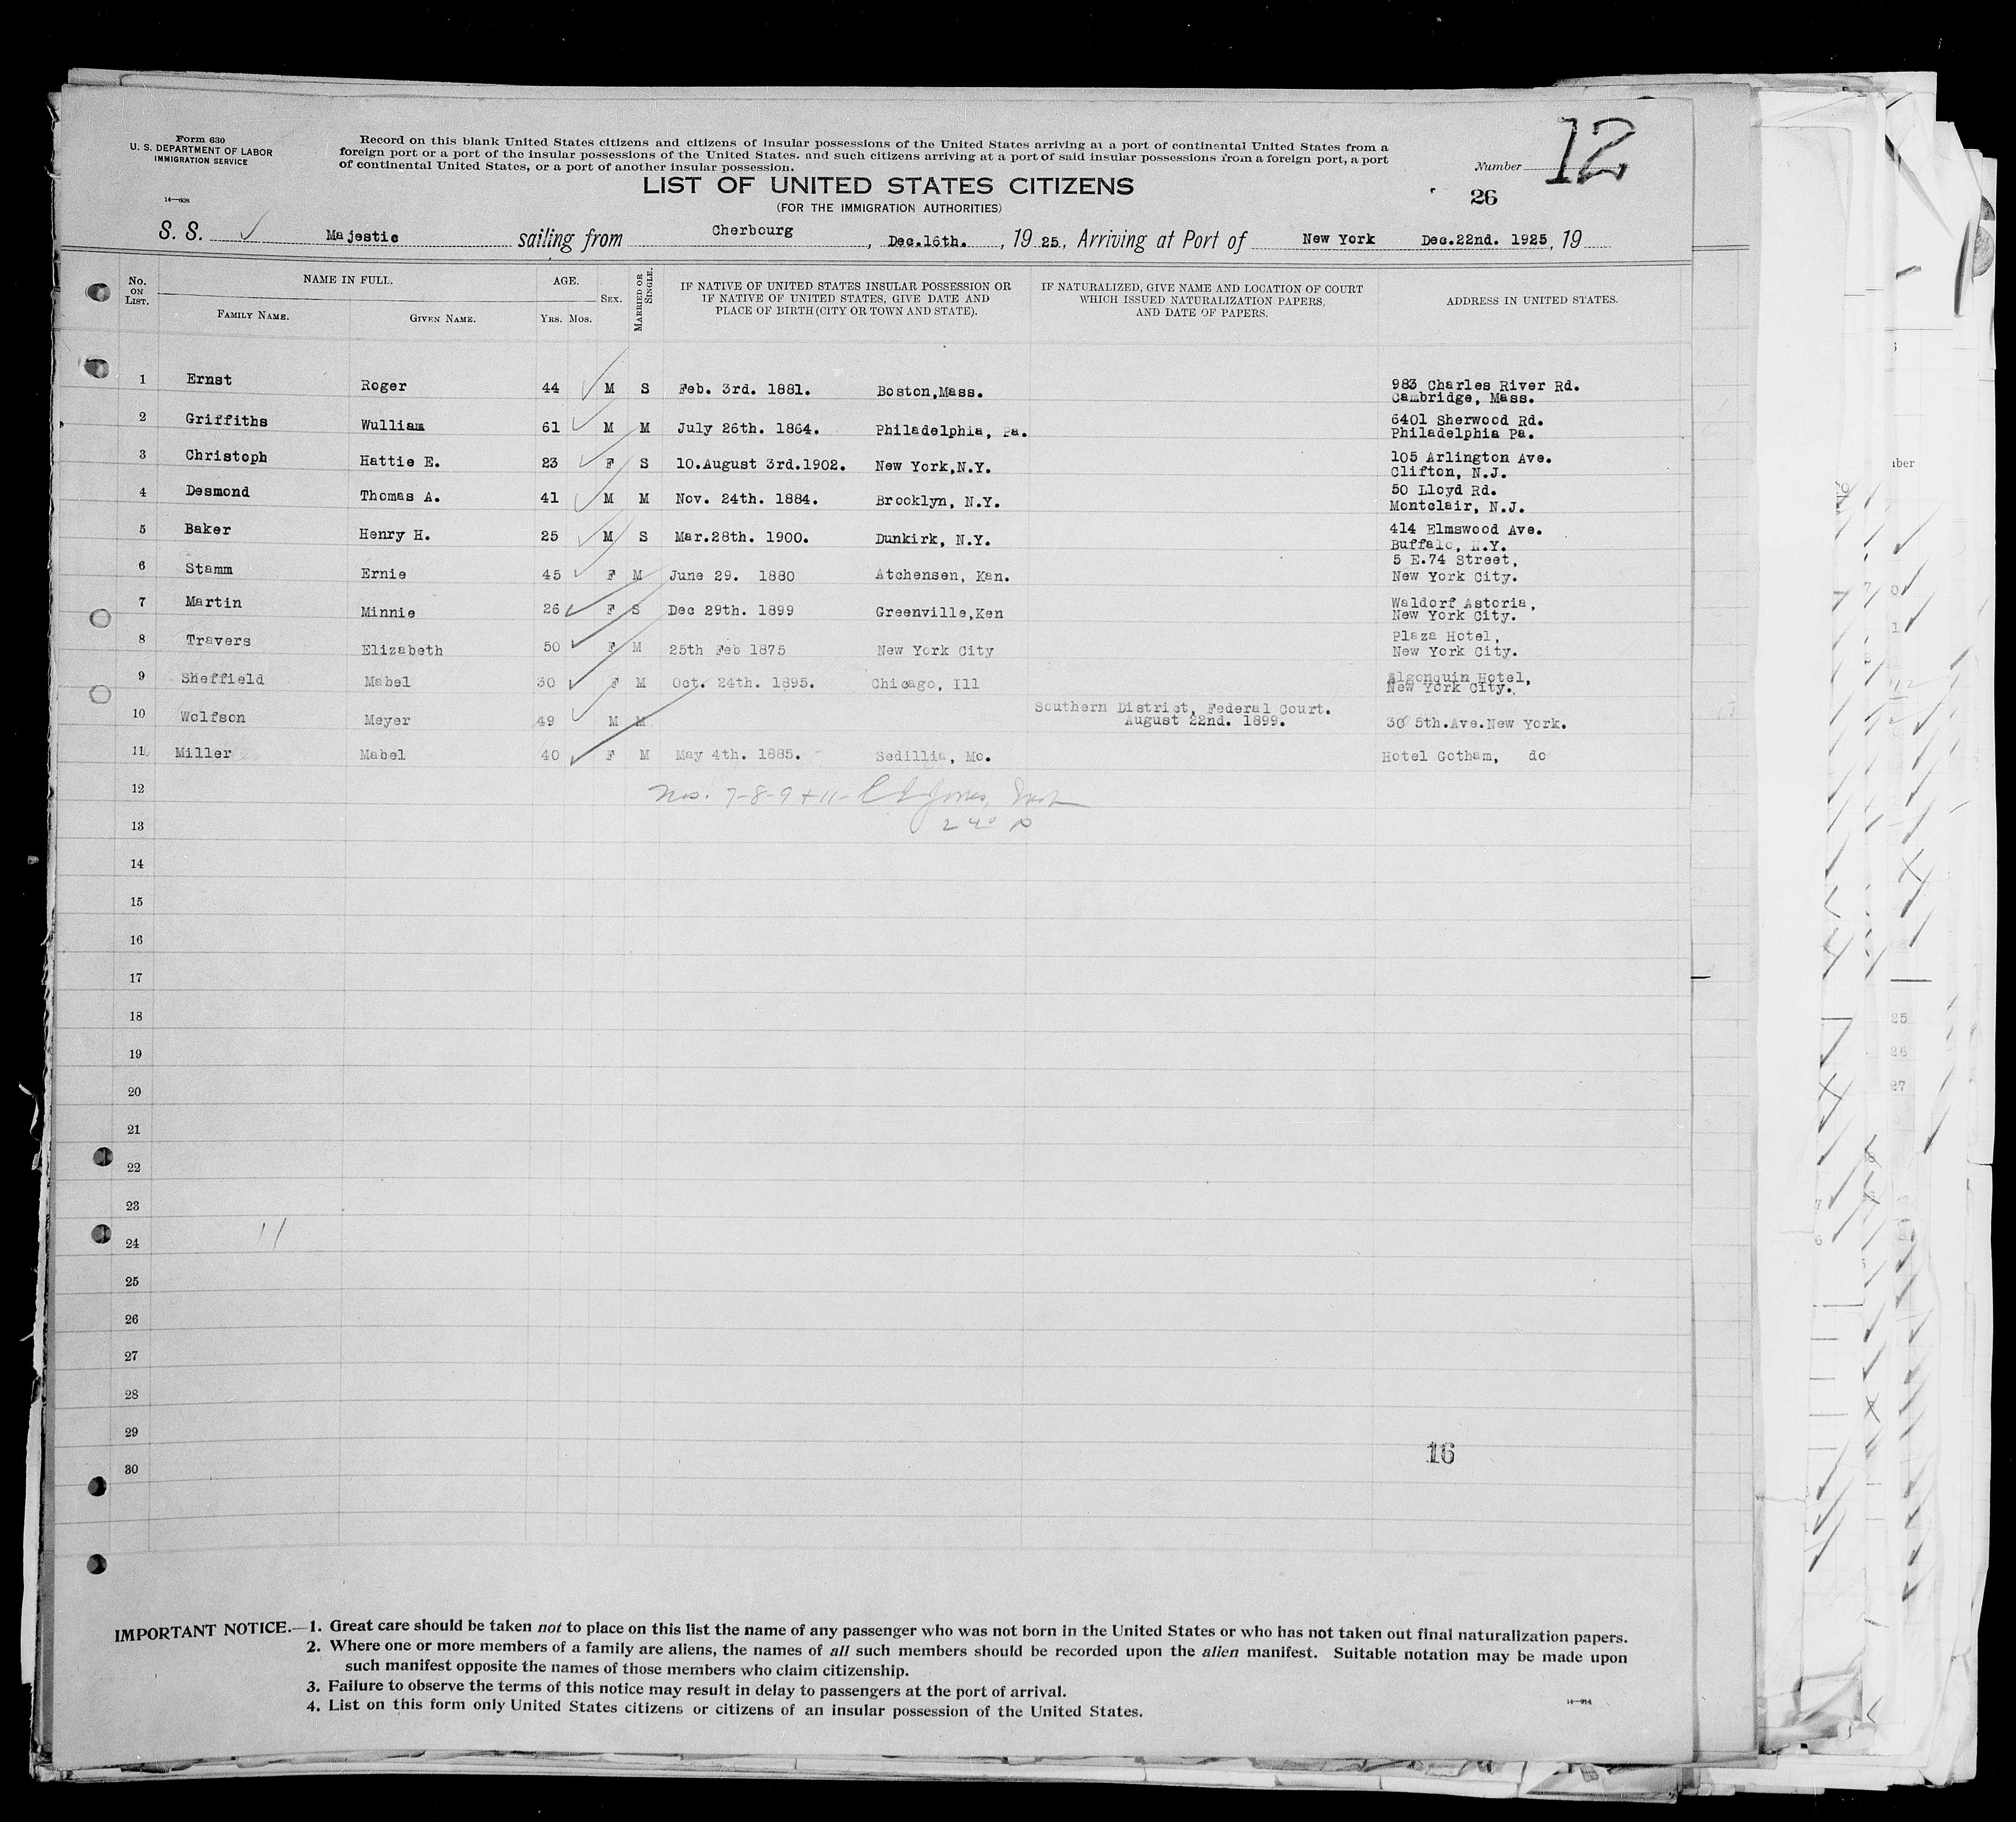 Form 630
U. S. DEPARTMENT OF LABOR
IMMIGRATION SERVICE
14—608
Record on this blank United States citizens and citizens of insular possessions of the United States arriving at a port of continental United States from a
foreign port or a port of the insular possessions of the United States. and such citizens arriving at a port of said insular possessions from a foreign port, a port
of continental United States, or a port of another insular possession.
Number 12
LIST OF UNITED STATES CITIZENS
26
(FOR THE IMMIGRATION AUTHORITIES)
S. S. ✓ Majestic sailing from Cherbourg, Dec.16th., 19 25, Arriving at Port of New York Dec.22nd. 1925, 19
No. ON LIST. NAME IN FULL. FAMILY NAME. GIVEN NAME. AGE. YRS. MOS. SEX. MARRIED OR SINGLE. IF NATIVE OF UNITED STATES INSULAR POSSESSION OR IF NATIVE OF UNITED STATES, GIVE DATE AND PLACE OF BIRTH (CITY OR TOWN AND STATE). IF NATURALIZED, GIVE NAME AND LOCATION OF COURT WHICH ISSUED NATURALIZATION PAPERS, AND DATE OF PAPERS. ADDRESS IN UNITED STATES.
1 Ernst Roger 44 M S Feb. 3rd. 1881. Boston,Mass. 983 Charles River Rd. Cambridge, Mass.
2 Griffiths Wulliam 61 M M July 26th. 1864. Philadelphia, Pa. 6401 Sherwood Rd. Philadelphia Pa.
3 Christoph Hattie E. 23 F S 10.August 3rd.1902. New York,N.Y. 105 Arlington Ave. Clifton, N.J.
4 Desmond Thomas A. 41 M M Nov. 24th. 1884. Brooklyn, N.Y. 50 Lloyd Rd. Montclair, N.J.
5 Baker Henry H. 25 M S Mar.28th. 1900. Dunkirk, N.Y. 414 Elmswood Ave. Buffalo, N.Y.
6 Stamm Ernie 45 F M June 29. 1880 Atchensen, Kan. 5 E.74 Street, New York City.
7 Martin Minnie 26 F S Dec 29th. 1899 Greenville,Ken Waldorf Astoria, New York City.
8 Travers Elizabeth 50 F M 25th Feb 1875 New York City Plaza Hotel, New York City.
9 Sheffield Mabel 30 F M Oct. 24th. 1895. Chicago, Ill Algonquin Hotel, New York City.
10 Wolfson Meyer 49 M M Southern District, Federal Court. August 22nd. 1899. 30 5th.Ave.New York.
11 Miller Mabel 40 F M May 4th. 1885. Sedillia, Mo. Hotel Gotham, do
12 Nos. 7-8-9 + 11-
13
14
15
16
17
18
19
20
21
22
23
11
24
25
26
27
28
29
16
30
IMPORTANT NOTICE.—1. Great care should be taken not to place on this list the name of any passenger who was not born in the United States or who has not taken out final naturalization papers.
2. Where one or more members of a family are aliens, the names of all such members should be recorded upon the alien manifest. Suitable notation may be made upon
such manifest opposite the names of those members who claim citizenship.
3. Failure to observe the terms of this notice may result in delay to passengers at the port of arrival.
4. List on this form only United States citizens or citizens of an insular possession of the United States.
14—914